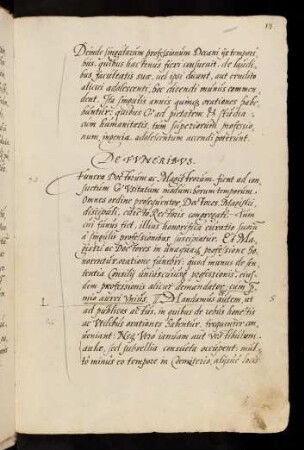 18
Deinde singularum professionum Decani ijs tempori,
bus, quibus hactenus fieri consuevit, de laudi,
bus facultatis suæ, vel ipsi dicant, aut erudito
alicui adolescenti, hoc dicendi munus commen,
dent. Ita singulis annis quinque orationes habe,
buntur: quibus & ad pietatem & studia
cum humanitatis, tum superiorum professio,
num, ingenia adolescentum accendi poterunt.
DE FVNERIBVS.
Funera Doctorum ac Magistrorum fient ad con,
suetum & usitatum modum horum temporum.
Omnes ordine prosequentur Doctores Magistri,
discipuli, edicto Rectoris congregati. Nam
cui funus fiet, illius honorifica curatio
à singulis professionibus suscipiatur. Et Ma,
gistri ac Doctores in unaquaque professione ho,
norentur oratione funebri: quod munus de sen,
tentia Consilij uniuscuiusque professionis, eius,
dem professionis alicui demandetur, cum
aurei unius. Mandamus autem, ut
ad publicos actus, in quibus de rebus honestis
ac utilibus orationes habentur, frequenter con,
veniant: Neque vero ianuam aut vestibulum
aulæ, sed subsellia consueta occupent: mul,
tò minus eo tempore in Coemiterio, alijsue locis
5